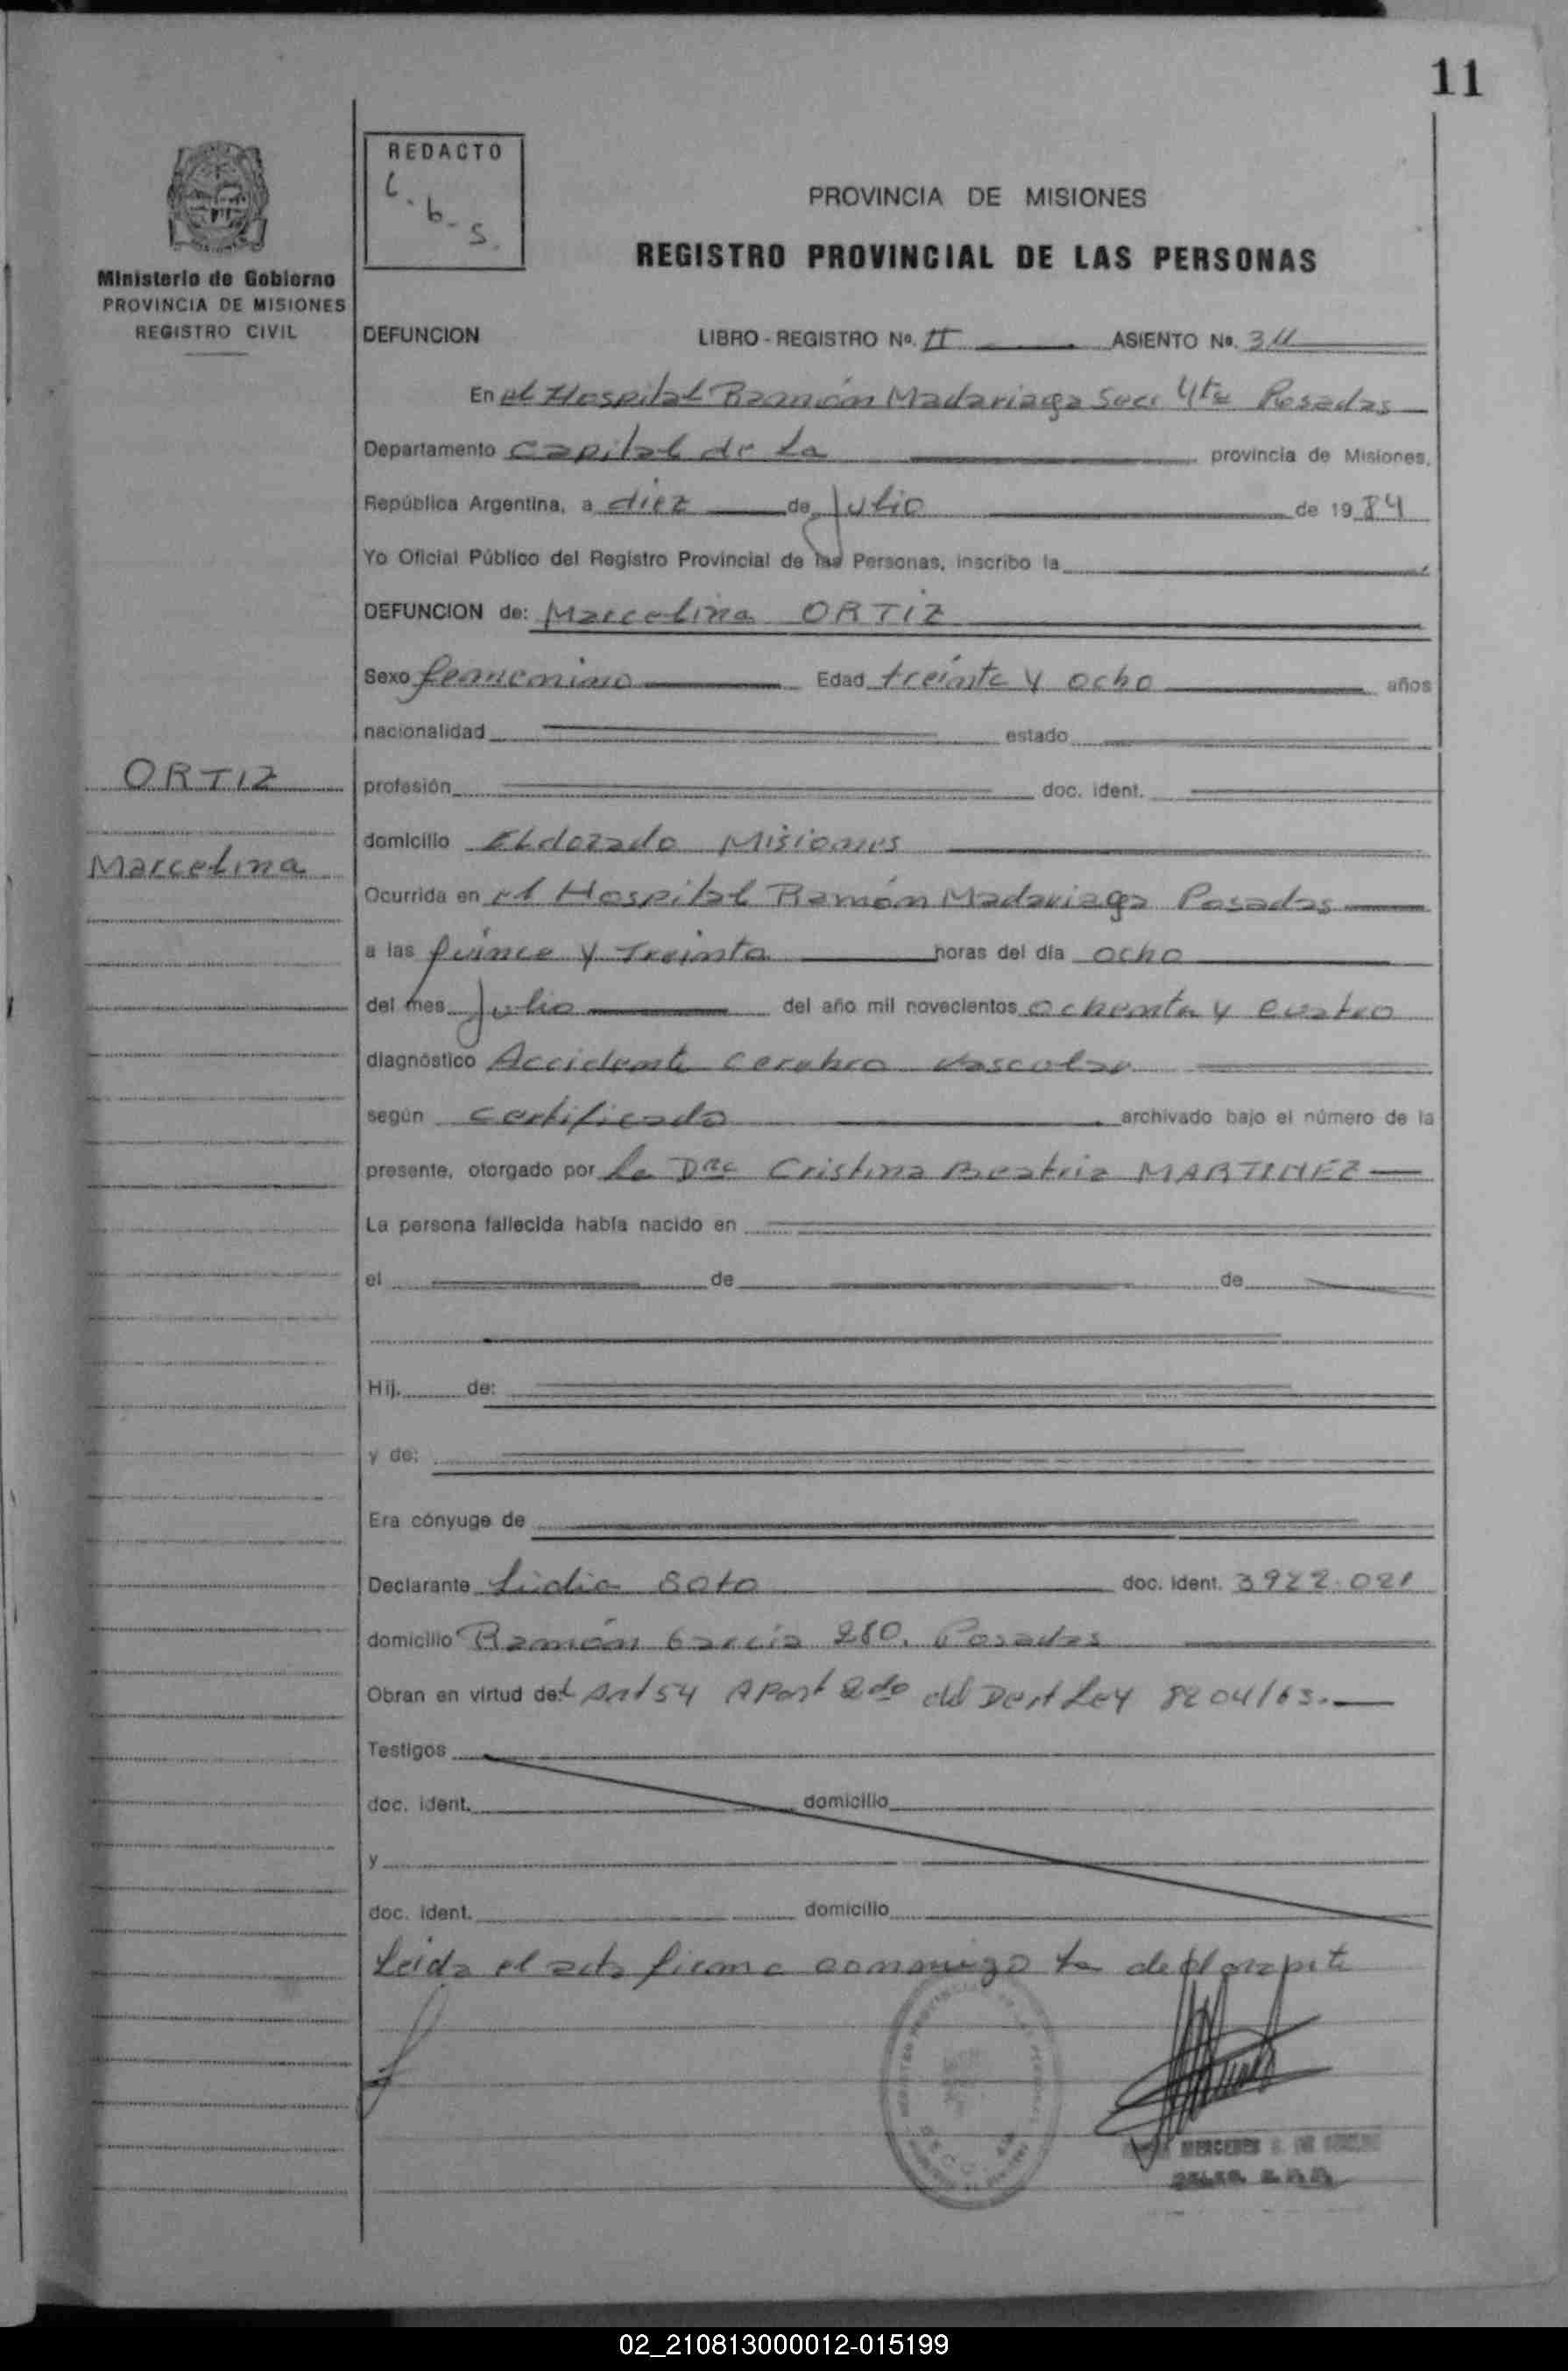 11
REDACTO
C.b.S.
PROVINCIA DE MISIONES
REGISTRO PROVINCIAL DE LAS PERSONAS
Ministerio de Gobierno
PROVINCIA DE MISIONES
REGISTRO CIVIL
DEFUNCION LIBRO - REGISTRO Nº. II ASIENTO Nº. 311
En el Hospital Ramón Madariaga Secc 4ta Posadas
Departamento Capital de la provincia de Misiones,
República Argentina, a diez de Julio de 1984
Yo Oficial Público del Registro Provincial de las Personas, inscribo la
DEFUNCION de: Marcelina ORTIZ
Sexo femenino Edad treinta y ocho años
nacionalidad estado
ORTIZ
profesión doc. ident.
domicilio Eldorado Misiones
Marcelina
Ocurrida en el Hospital Ramón Madariaga Posadas
a las quince y Treinta horas del día ocho
del mes Julio del año mil novecientos ochenta y cuatro
diagnóstico Accidente cerebro vascular
según certificado archivado bajo el número de la
presente, otorgado por la Dra Cristina Beatriz MARTINEZ
La persona fallecida había nacido en
el de de
Hij. de:
y de:
Era cónyuge de
Declarante Lidia Soto doc. ident. 3922.021
domicilio Ramón García 280. Posadas
Obran en virtud del Art 54 Apart 2do del Dert Ley 8204/63.
Testigos
doc. ident. domicilio
y
doc. ident. domicilio
Leida el acta firma conmigo la declarante
MERCEDES
02_210813000012-015199